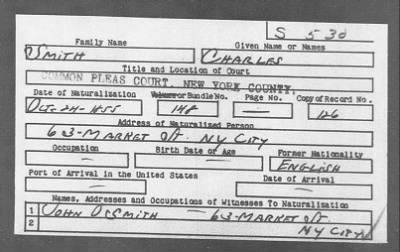 S 530
Family Name Given Name or Names
SMITH CHARLES
Title and Location of Court
COMMON PLEAS COURT, NEW YORK COUNTY.
Date of Naturalization Volume or Bundle No. Page No. Copy of Record No.
OCT-24-1855 148 — 126
Address of Naturalized Person
63-MARKET ST. NY CITY
Occupation Birth Date or Age Former Nationality
— — ENGLISH
Port of Arrival in the United States Date of Arrival
— —
Names, Addresses and Occupations of Witnesses To Naturalization
1 JOHN D SMITH — 63-MARKET ST
2 NY CITY